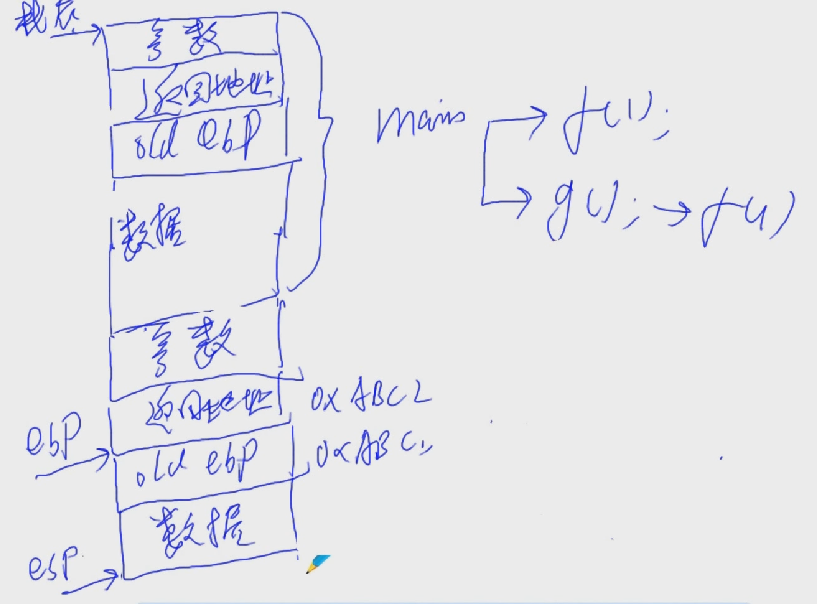 栈底
参数
返回地址
old ebp
main
f();
g(); → f()
数据
参数
返回地址 0xABC2
ebp
old ebp 0xABC
数据
esp